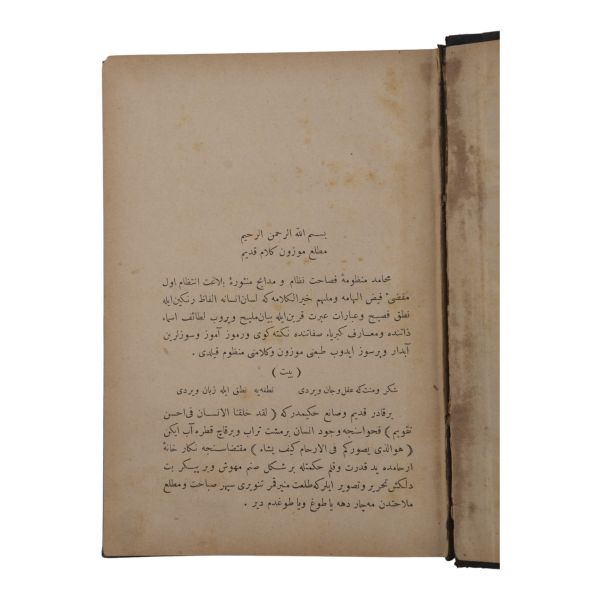 بسم الله الرحمن الرحيم
مطلع موزون كلام قديم
محامد منظومهٔ فصاحت نظام و مدايح منثورهٔ بلاغت انتظام اول
مفضئ فيض الهامه وملهم خير الكلامه كه لسان انسانه الفاظ رنكين ايله
نطق فصيح و عبارات عبرت قرين ايله بيان مليح ويروب لطائف اسماء
ذاتنده ومعارف كبرياء صفاتنده نكته كوى ورموز آموز وسوزلرين
آبدار وپرسوز ايدوب طبعنى موزون وكلامنى منظوم قيلدى .
( بيت )
شكر ومنت كه عقل وجان ويردى نطفه يه نطق ايله زبان ويردى
برقادر قديم وصانع حكيمدركه ( لقد خلقنا الانسان فى احسن
تقويم ) فحواسنجه وجود انسان برمشت تراب وبرقاچ قطره آب ايكن
( هو الذى يصوركم فى الارحام كيف يشاء ) مقتضاسنجه نكار خانهٔ
ارحامده يد قدرت وقلم حكمتله بر شكل صنم مهوش وبر پيكر بت
دلكش تحرير و تصوير ايلركه طلعت منير قمر تنويرى سپهر صباحت و مطلع
ملاحتدن مه چار دهه يا طوغ ويا طوغدم دير .